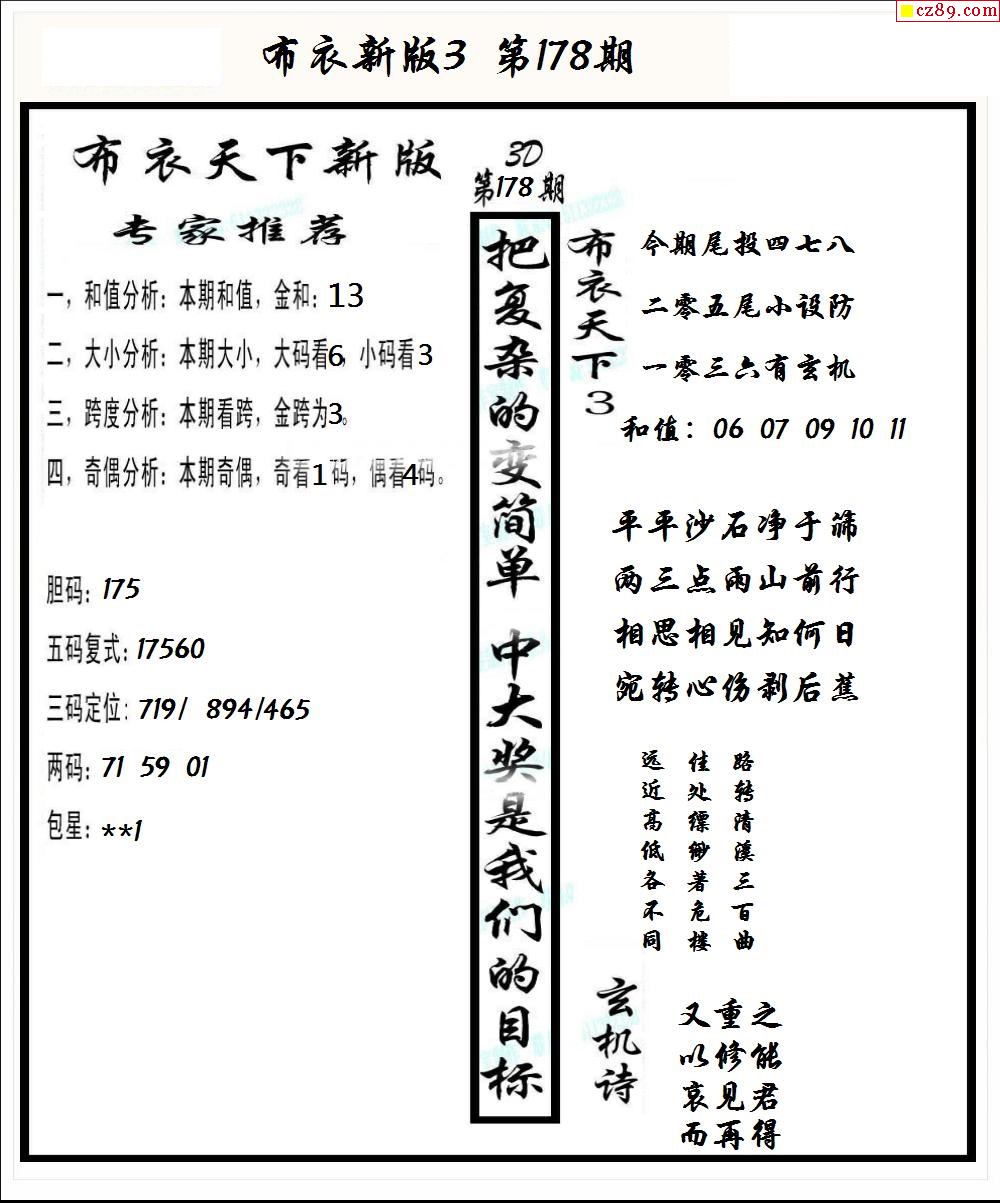 cz89.com
布衣新版3 第178期
布衣天下新版
专家推荐
一，和值分析：本期和值，金和：13
二，大小分析：本期大小，大码看6，小码看3
三，跨度分析：本期看跨，金跨为3。
四，奇偶分析：本期奇偶，奇看1码，偶看4码。
胆码：175
五码复式：17560
三码定位：719/ 894/465
两码：71 59 01
包星：**1
3D
第178期
把复杂的变简单 中大奖是我们的目标
布衣天下3
今期尾投四七八
二零五尾小设防
一零三六有玄机
和值： 06 07 09 10 11
平平沙石净于筛
两三点雨山前行
相思相见知何日
宛转心伤剥后蕉
路转清溪三百曲
佳处缥缈著危楼
远近高低各不同
玄机诗
又重之
以修能
哀见君
而再得